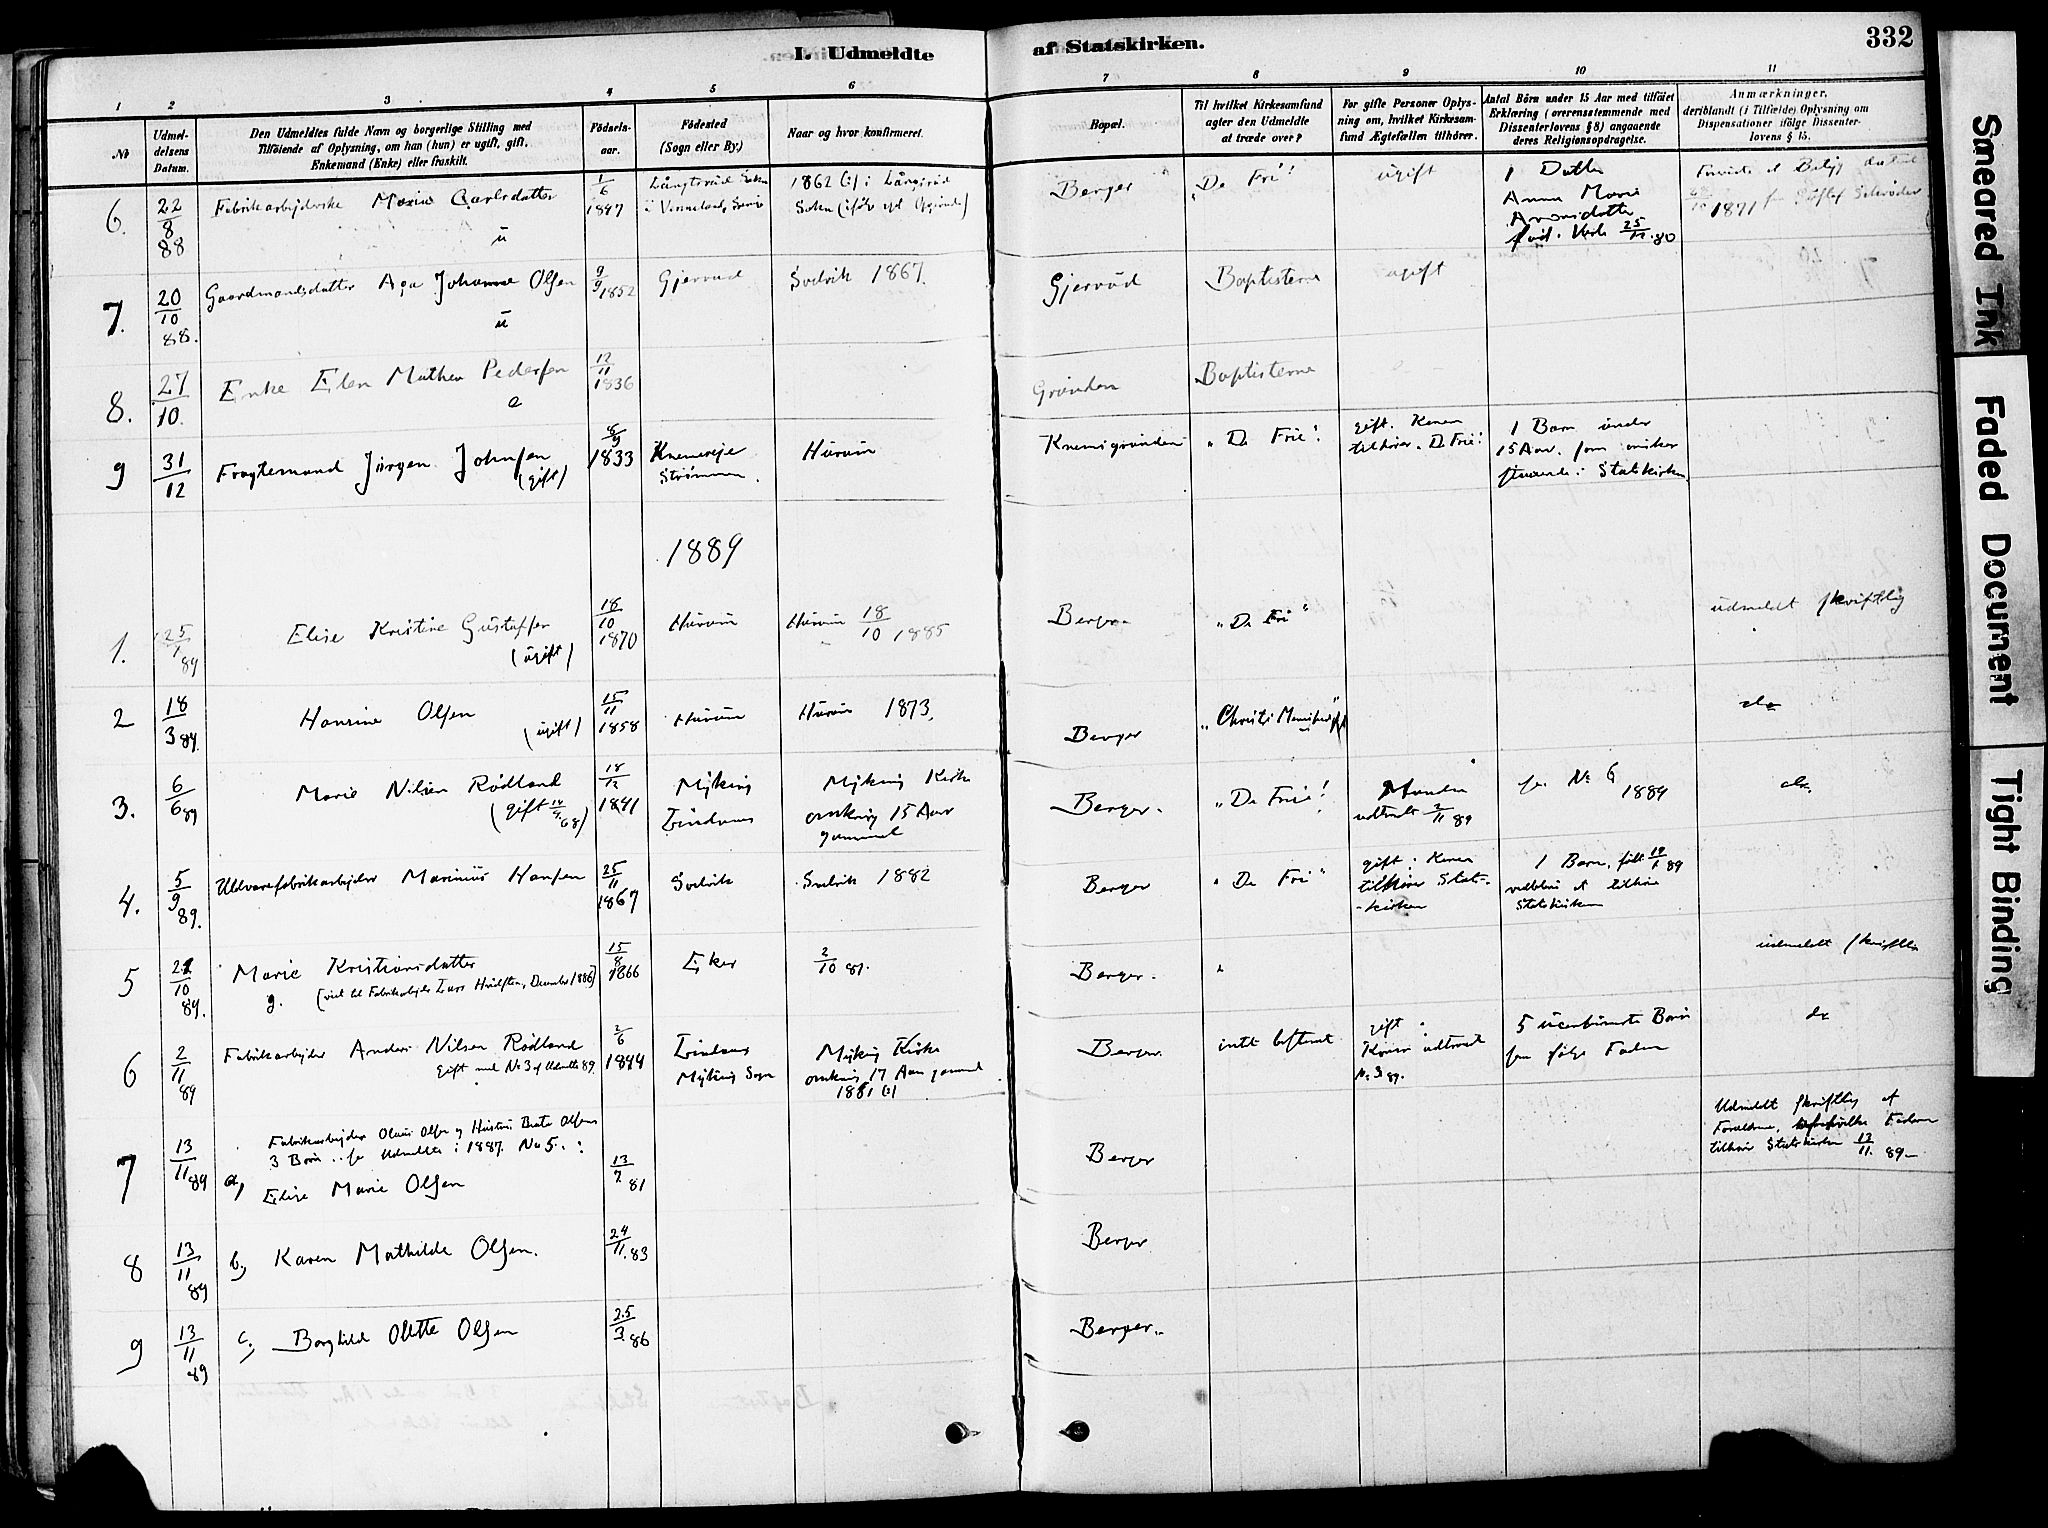 I. Udmeldte af Statskirken.
332
1 2 3 4 5 6 7 8 9 10 11
No
Udmeldelsens Datum.
Den Udmeldtes fulde Navn og borgerlige Stilling med
Tilföiende af Oplysning, om han (hun) er ugift, gift,
Enkemand (Enke) eller fraskilt.
Födselsaar.
Födested
(Sogn eller By.)
Naar og hvor konfirmeret.
Bopæl.
Til hvilket Kirkesamfund
agter den Udmeldte
at træde over?
For gifte Personer Oplys-
ning om, hvilket Kirkesam-
fund Ægtefællen tilhörer.
Antal Börn under 15 Aar med tilföiet
Erklæring (overensstemmende med
Dissenterlovens § 8) angaaende
deres Religionsopdragelse.
Anmærkninger,
deriblandt (i Tilfælde) Oplysning om
Dispensationer ifölge Dissenter-
lovens § 15.
6. 22/8 88 Fabrikarbejderske Maria Carlsdatter u 1/6 1847
1862
Berger "De Fri" ugift
1 Datter
Anna Marie
7. 20/10 88. Gaardmandsdatter Aga Johanne Olsen u 9/9 1852 Gjerrud Svelvik 1867. Gjerrud Baptisterne ugift
8. 27/10. Enke Elen Mathea Pedersen e 12/11 1836 Grønden Baptisterne
9 31/12 Fragtemand Jørgen Johnsen (gift) 8/9 1833
Strømmen. Hurum "De Frie"
gift. Konen
tilhører "De Frie"
1 Barn under
15 Aar, som ønsker
Statskirken
1889
1. 25/1 89 Elise Kristine Gustafsen (ugift) 18/10 1870 Hurum Hurum 18/10 1885 Berger "De Fri" udmeldt skriftlig
2 18/3 89. Hansine Olsen (ugift) 15/11 1858 Hurum Hurum 1873. Berger do
3. 6/6 89 Marie Nilsen Rødland 18/12 1841
Myking
Lindaas
Myking Kirke
omkring 15 Aar
gammel
Berger. "De Frie"
Manden
udtraadt 2/11 89
No 6 1889 do.
4. 5/9 89. Uldvarefabrikarbejder Marinius Hansen 25/11 1867 Svelvik Svelvik 1882 Berger "De Fri"
gift. Konen
tilhører Stats-
-kirken
1 Barn, født
tilhøre
Statskirken
5 21/10 89. Marie Kristiansdatter 15/8 1866 Eker 2/10 81. Berger. udmeldt skriftlig
g. (viet til Fabrikarbejder Lars Hvidsten, December 1886)
6 2/11 89 Fabrikarbejder Anders Nilsen Rødland 2/6 1844
Gift med No 3 af Udmeldte 89.
Lindaas
Myking Sogn
Myking Kirke
omkring 17 Aar gammel
Berger. intet bestemt
gift.
Konen udtraadt
No 3 89.
5 ukonfirmerede Børn
som følge Faderen
do
7 13/11 89
Fabrikarbejder Olaus Olsen og Hustru Beate Olsens
3 Børn .. se Udmeldte i 1887. No 5.:
a) Elise Marie Olsen 13/7 81 Berger
Udmeldt skriftlig af
Forældrene,
tilhører Statskirken 13/11. 89.
8 13/11 89 b) Karen Mathilde Olsen. 24/11. 83 Berger
9 13/11 89 c) Borghild Olette Olsen 25/3. 86 Berger.
Smeared Ink
Faded Document
Tight Binding